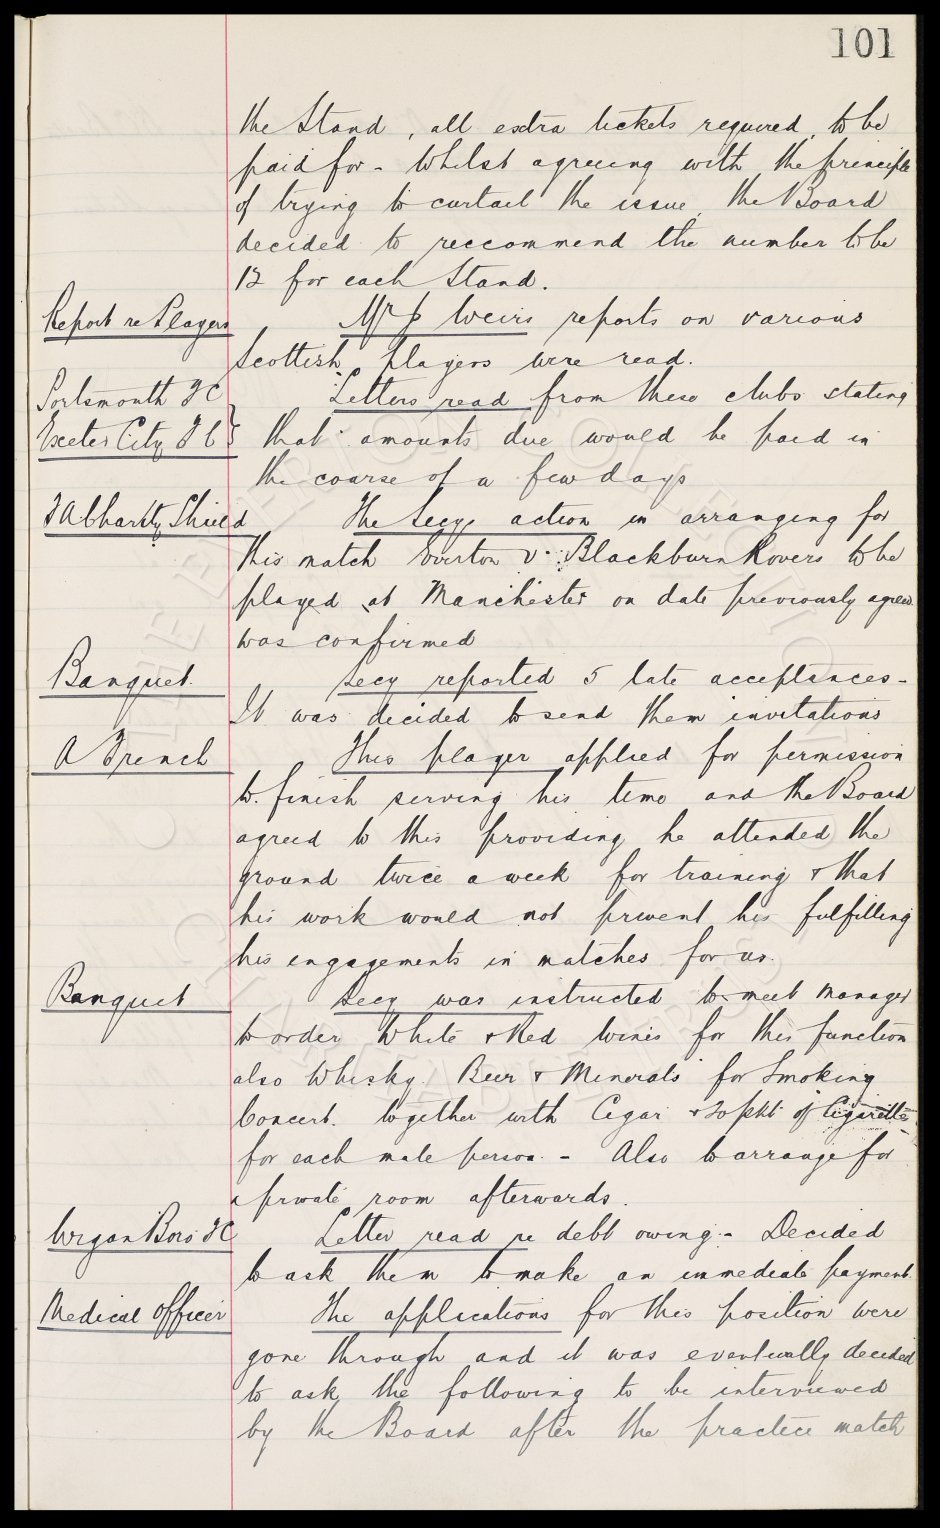 101
the Stand, all extra tickets required, to be
paid for - Whilst agreeing with the principle
of trying to curtail the issue, the Board
decided to reccommend the number to be
12 for each Stand.
Report re Players
Mr J Weirs reports on various
Scottish players were read.
Portsmouth F C
Exeter City F C
Letters read from these clubs stating
that amounts due would be paid in
the coarse of a few days
F A Charity Shield
The Secys action in arranging for
this match Everton v. Blackburn Rovers to be
played at Manchester on date previously agreed
was confirmed
Banquet
Secy reported 5 late acceptances -
It was decided to send them invitations
A French
This player applied for permission
to finish serving his time and the Board
agreed to this providing he attended the
ground twice a week for training & that
his work would not prevent his fulfilling
his engagements in matches for us.
Banquet
Secy was instructed to meet Manager
to order White & Red Wines for this function
also Whisky. Beer & Minerals for Smoking
Concert. together with Cigar & 20 pkt of Cigarettes
for each male person. - Also to arrange for
a private room afterwards.
Wigan Boro F C
Letter read re debt owing. - Decided
to ask them to make an immediate payment.
Medical Officer
The applications for this position were
gone through and it was eventually decided
to ask the following to be interviewed
by the Board after the practice match